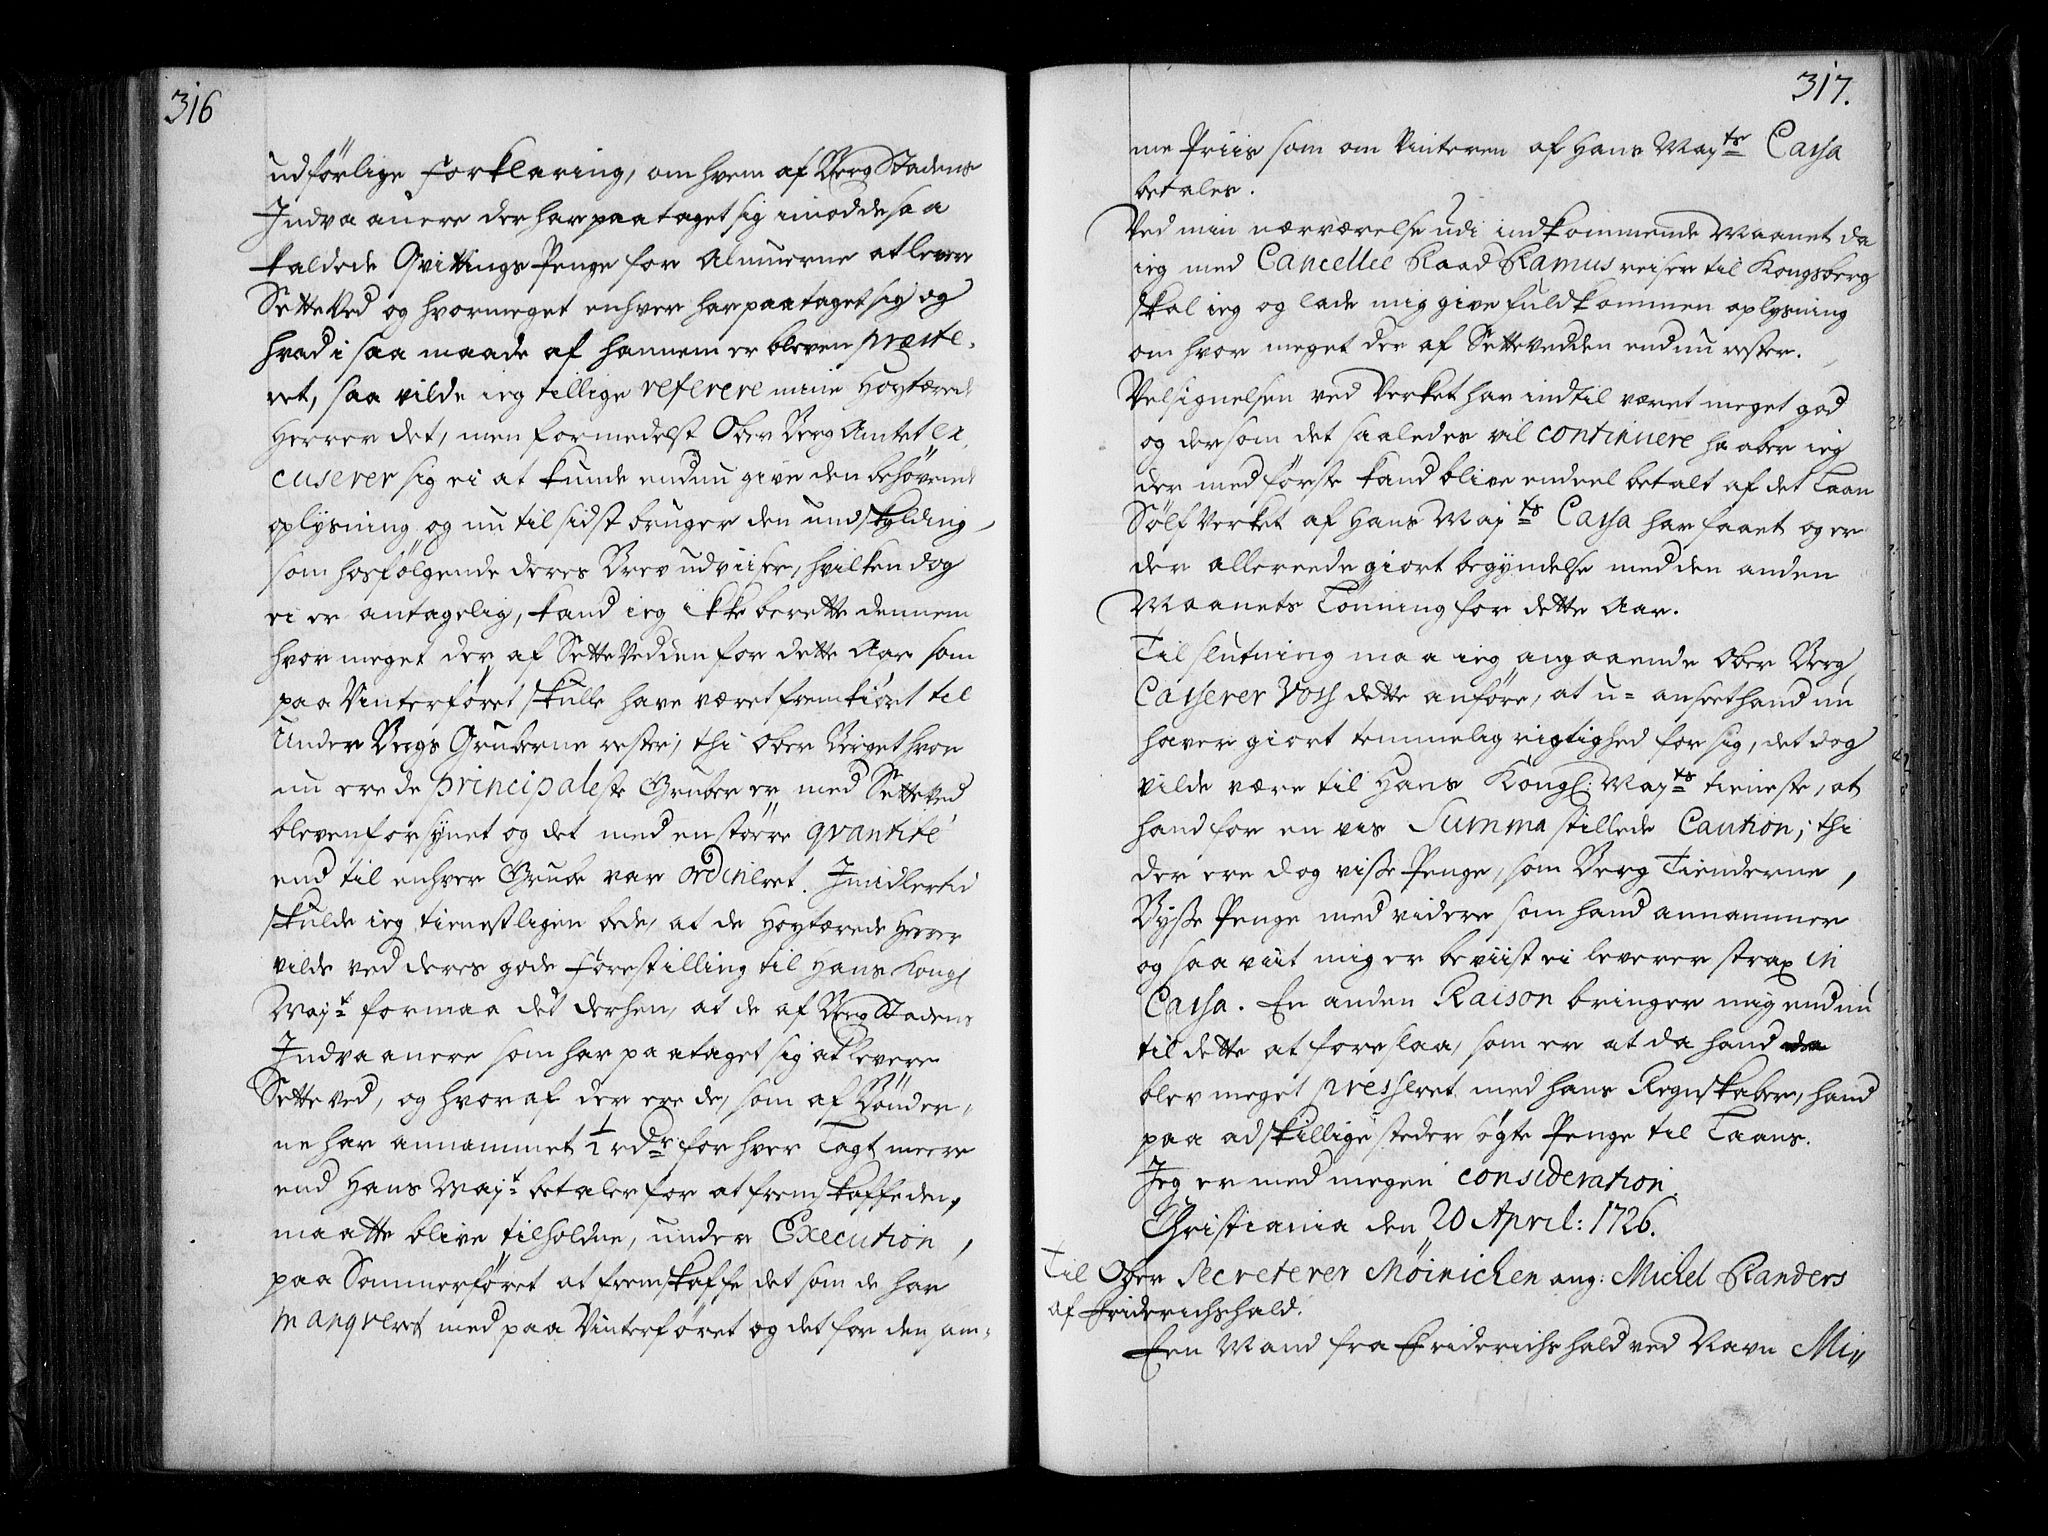 316
udförlige forklaring, om hvem af Berg Stadens
Indvaanere der har paataget sig imod de saa
kaldede Qvittings Penge for Almuerne at levere
Setteved og hvor meget enhver har paataget sig og
hvad i saa maade af hannem er bleven præste-
ret, saa vilde ieg tillige referere mine Høytærede
Herrer det, men formedelst Ober Berg Amtet ex,
cuserer sig ei at kunde endnu give den behövende
oplysning, og nu til sidst bruger den undskylding,
som hosfölgende deres Brev udviiser, hvilken dog
ei er antagelig, kand ieg ikke berette dennem
hvor meget der af Settevedden for dette Aar som
paa Vinterföret skulle have været fremkiört til
Under Bergs Gruberne rester; thi Ober Berget hvor
nu ere de principaleste Gruber er med Setteved
bleven forsynet og det med en större qvantité
end til enhver Grube var ordineret. Imidlertid
skulde ieg tienestligen bede, at de Høytærede Herrer
vilde ved deres gode forestilling til Hans Kongl
Mayt formaa det derhen, at de af Berg Stadens
Indvaanere som har paataget sig at levere
Setteved, og hvoraf der ere de, som af Bönder,
ne har annammet ½ rdr for hver Lagt meere
end Hans Mayt betaler for at fremskaffe den,
maatte blive tilholdne, under Execution,
paa Sommerföret at fremskaffe det som de har
manqveret med paa Vinterföret og det for den sam-
317.
me Priis som om Vinteren af Hans Mayts Cassa
betales.
Ved min nærværelse udi indkommende Maanet da
ieg med Cancellie Raad Ramus reiser til Kongsberg
skal ieg og lade mig give fuldkommen oplysning
om hvor meget der af Settevedden endnu rester.
Velsignelsen ved Verket har indtil været meget god
og dersom det saaledes vil continuere haaber ieg
der med förste kand blive endeel betalt af det Laan
Sölf Verket af Hans Mayts Cassa har faaet og er
der allereede giort begyndelse med den anden
Maanets Lönning for dette Aar.
Til slutning maa ieg angaaende Ober Berg
Casserer Voss dette anföre, at u-anseet hand nu
haver giort temmelig rigtighed for sig, det dog
vilde være til Hans Kongl: Mayts tieneste, at
hand for en vis Summa stillede Caution; thi
der ere dog visse Penge, som Berg Tienderne,
Bysse Penge med videre som hand annammer
og saa viit mig er beviist ei leverer strax in
Cassa. En anden Raison bringer mig endnu
til dette at foreslaa, som er at da hand
blev meget presseret med hans Regnskaber, hand
paa adskillige steder sögte Penge til Laans.
Jeg er med megen consideration
Christiania den 20 April: 1726.
Til Ober Secreterer Möinichen ang: Michel Randers
af Friderichshald.
Een Mand fra Friderichshald ved Navn Mi,,